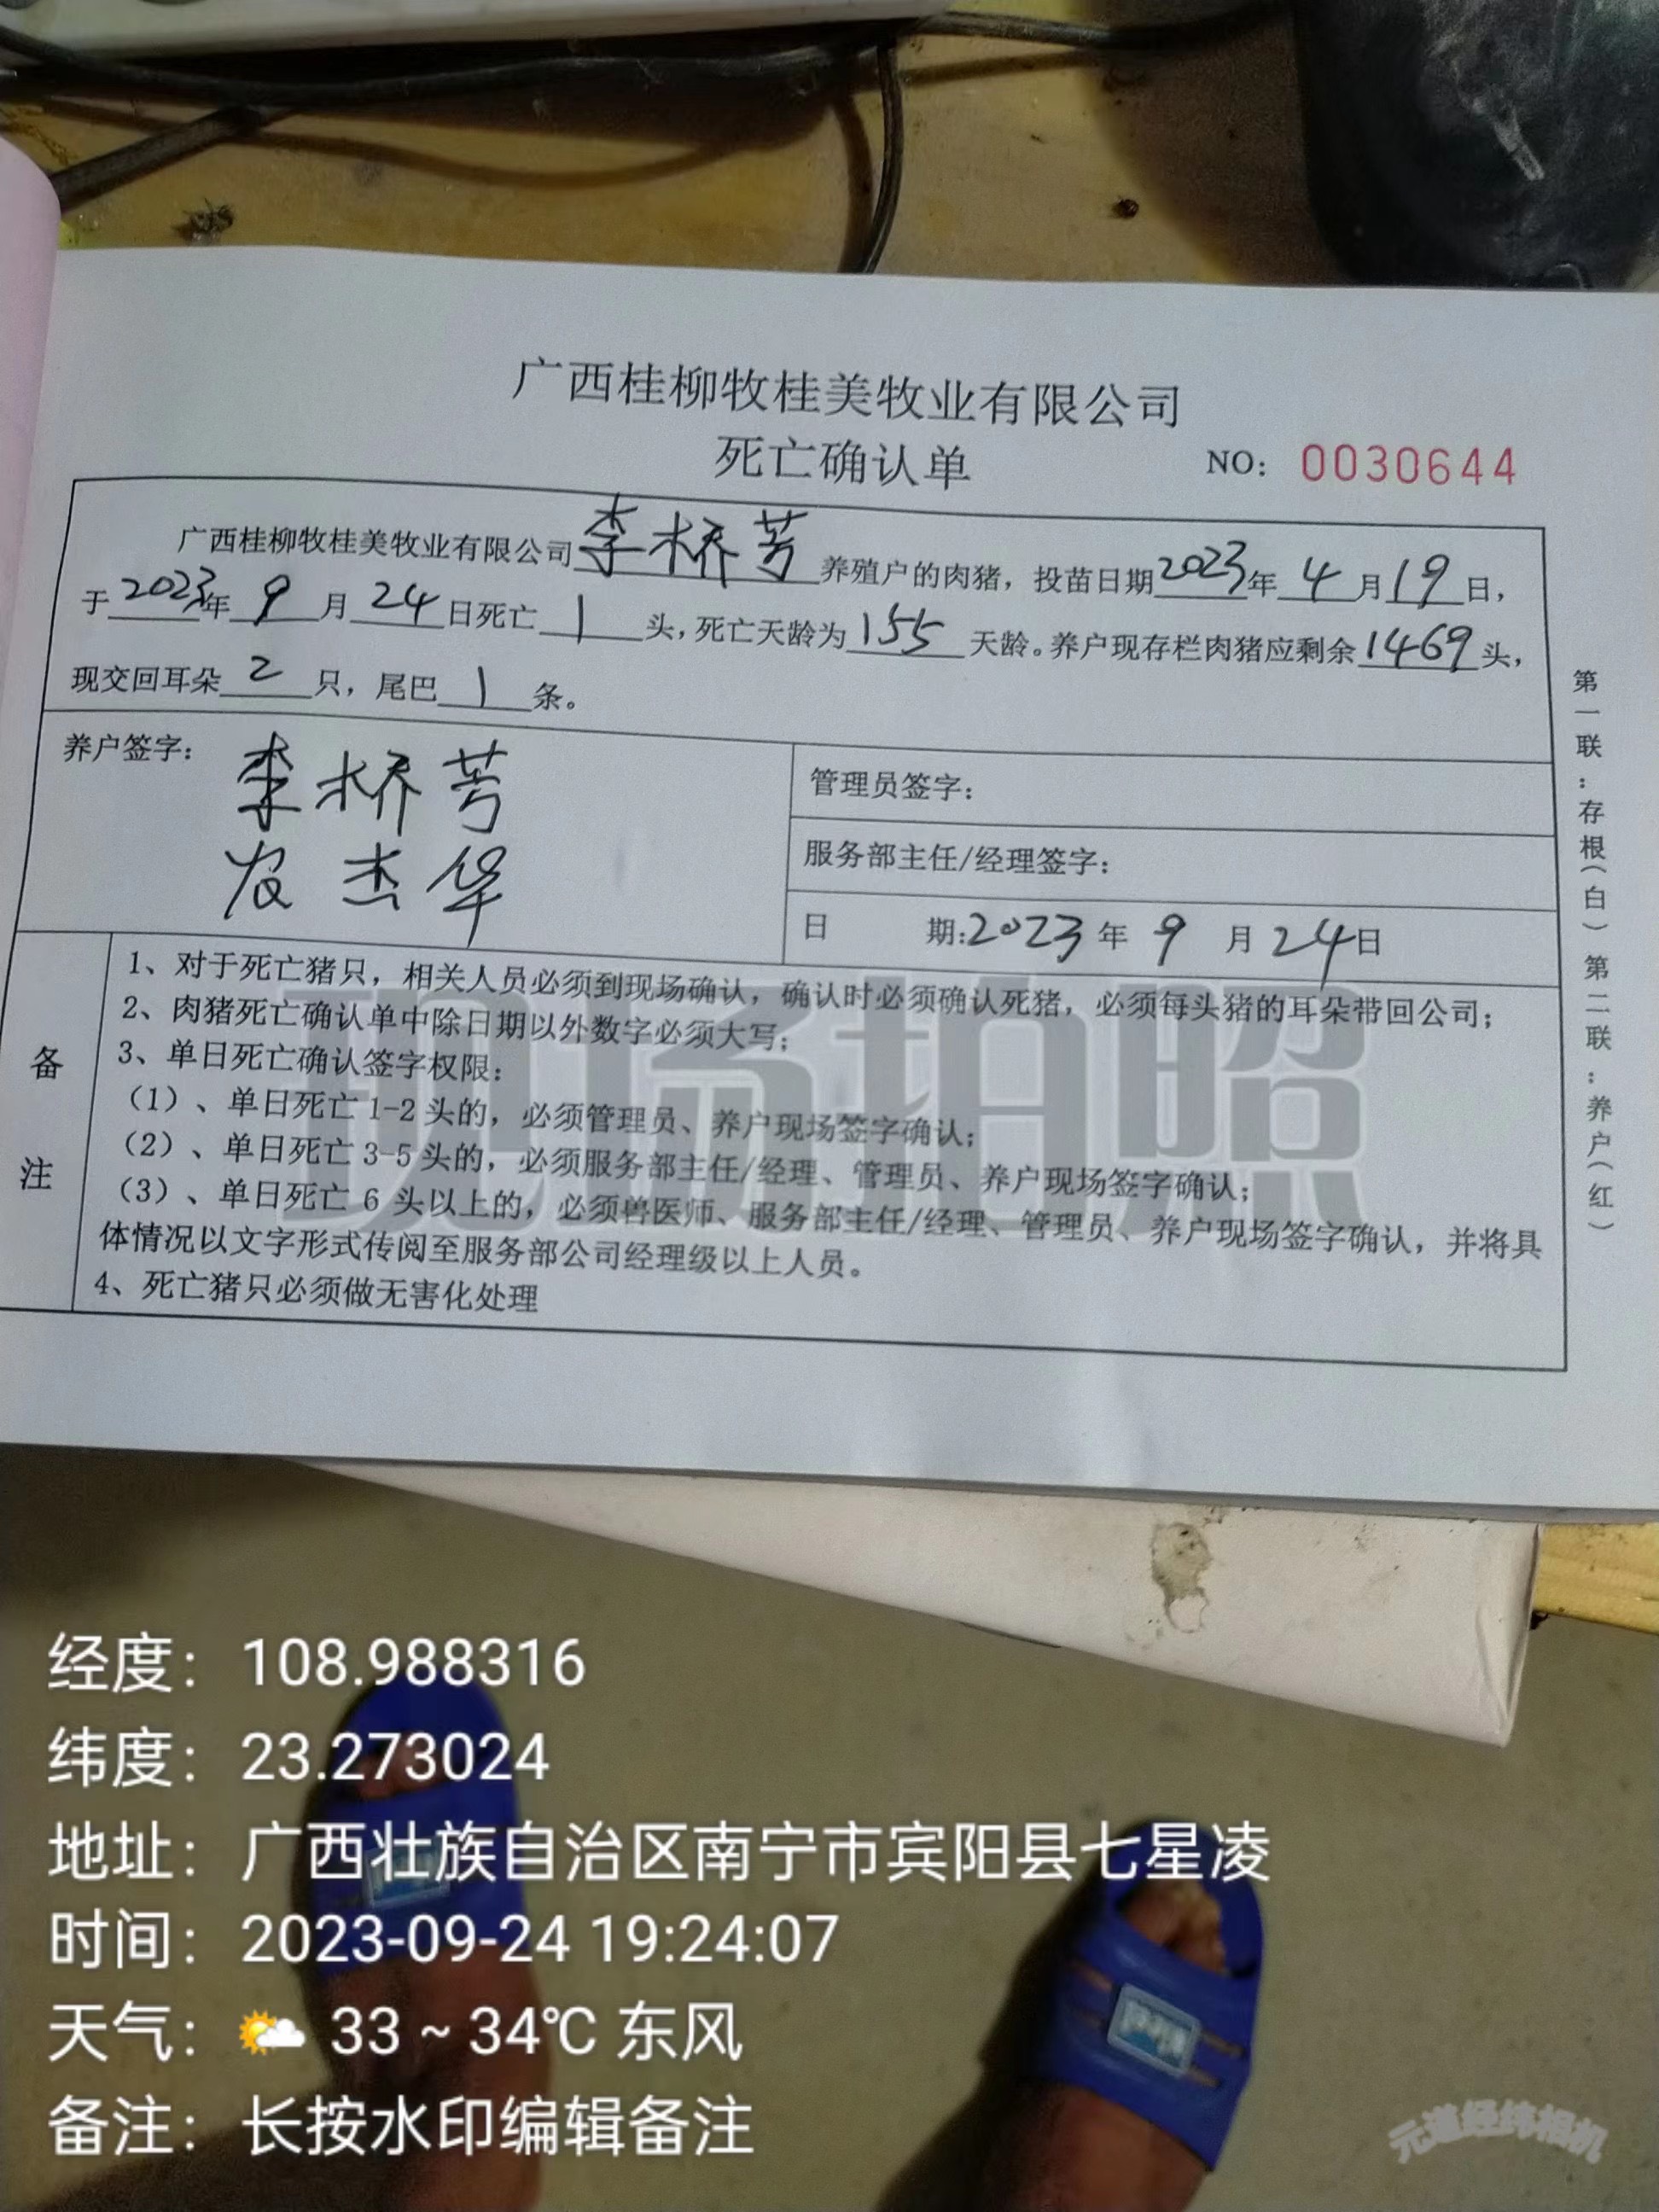 广西桂柳牧桂美牧业有限公司
死亡确认单
NO: 0030644
广西桂柳牧桂美牧业有限公司李桥芳养殖户的肉猪，投苗日期2023年4月19日，
于2023年9月24日死亡1头，死亡天龄为155天龄。养户现存栏肉猪应剩余1469头，
现交回耳朵2只，尾巴1条。
养户签字：
李桥芳
农杰华
管理员签字：
服务部主任/经理签字：
日期:2023年9月24日
备注
1、对于死亡猪只，相关人员必须到现场确认，确认时必须确认死猪，必须每头猪的耳朵带回公司；
2、肉猪死亡确认单中除日期以外数字必须大写；
3、单日死亡确认签字权限：
（1）、单日死亡1-2头的，必须管理员、养户现场签字确认；
（2）、单日死亡3-5头的，必须服务部主任/经理、管理员、养户现场签字确认；
（3）、单日死亡6头以上的，必须兽医师、服务部主任/经理、管理员、养户现场签字确认，并将具
体情况以文字形式传阅至服务部公司经理级以上人员。
4、死亡猪只必须做无害化处理
第一联：存根（白）第二联：养户（红）
现场拍照
经度：108.988316
纬度：23.273024
地址：广西壮族自治区南宁市宾阳县七星凌
时间：2023-09-24 19:24:07
天气：33 ~ 34℃ 东风
备注：长按水印编辑备注
元道经纬相机